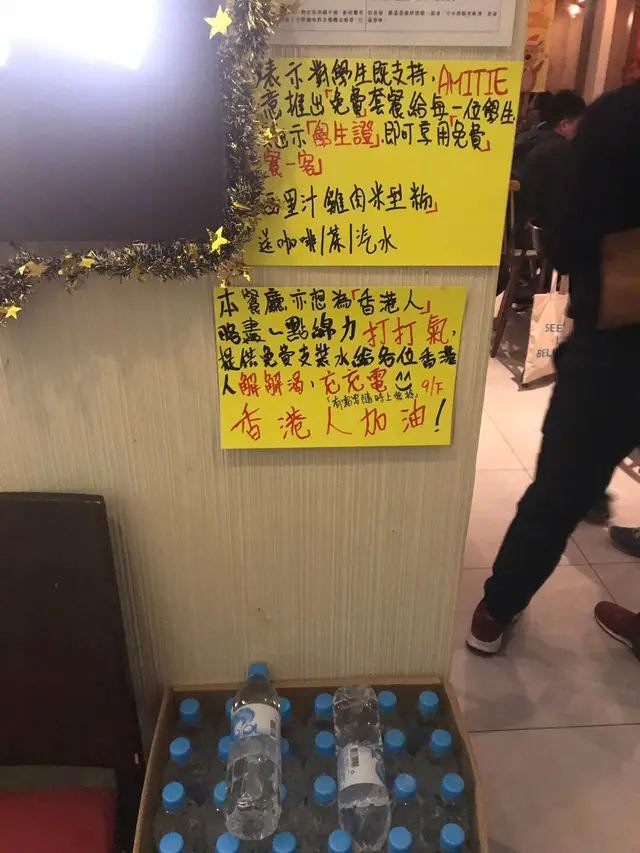 表亦對學生既支持,AMITIE
意推出「免費套餐給每一位學生
示「學生證」,即可享用「免費」
餐一客」
哩汁雞肉米型粉」
送咖啡/茶/汽水
本餐廳亦想為「香港人」
略盡一點綿力打打氣,
提供免費支裝水給各位香港
人解解渴,充充電 9/F
香港人加油!
SEE